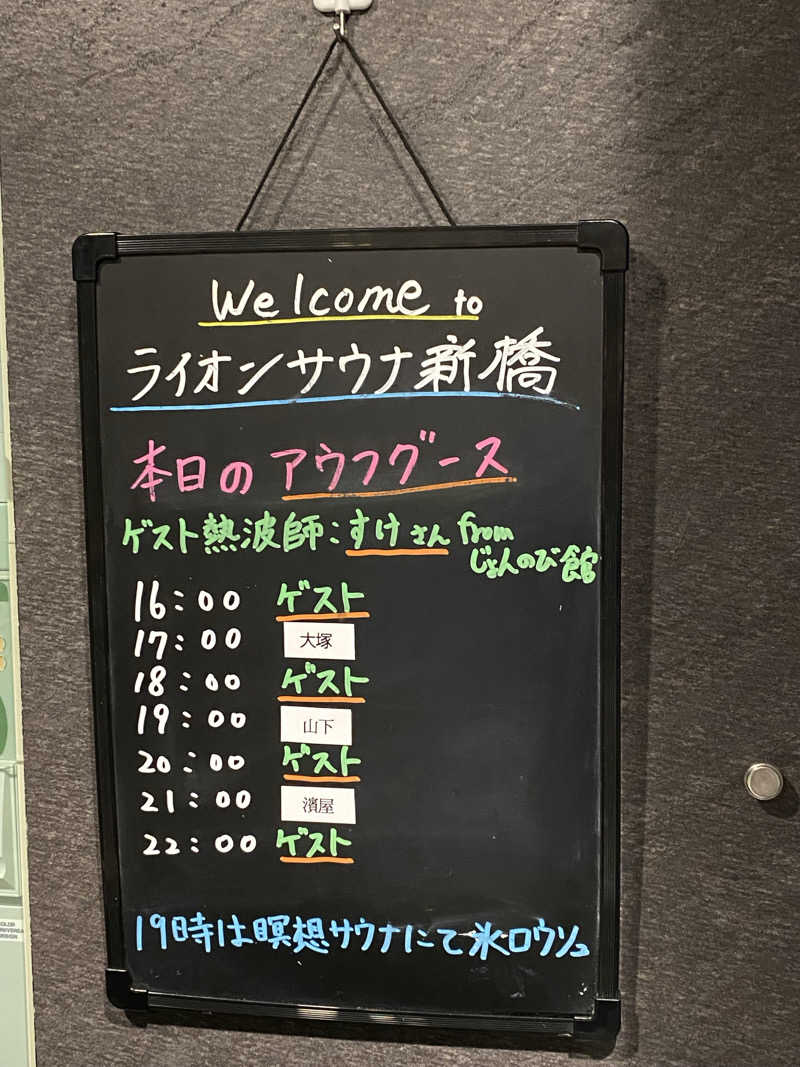 Welcome to
ライオンサウナ新橋
本日のアウフグース
ゲスト熱波師:すけさん from
じょんのび館
16:00 ゲスト
17:00 大塚
18:00 ゲスト
19:00 山下
20:00 ゲスト
21:00 濱屋
22:00 ゲスト
19時は瞑想サウナにて氷ロウリュ